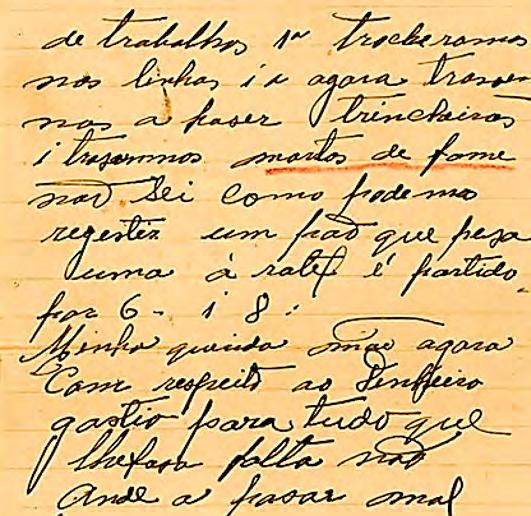 de trabalhos 1º trocheramos
nos linhas i a agora trasem
nos a faser trincheiras
i trasemnos mortos de fome
naõ Sei como podemos
regestir um paõ que pesa
uma à é partido
por 6 - i 8 :
Minha querida mãe agora
Com respeito ao dinheiro
gastio para tudo que
lhefasa falta naõ
Ande a pasar mal